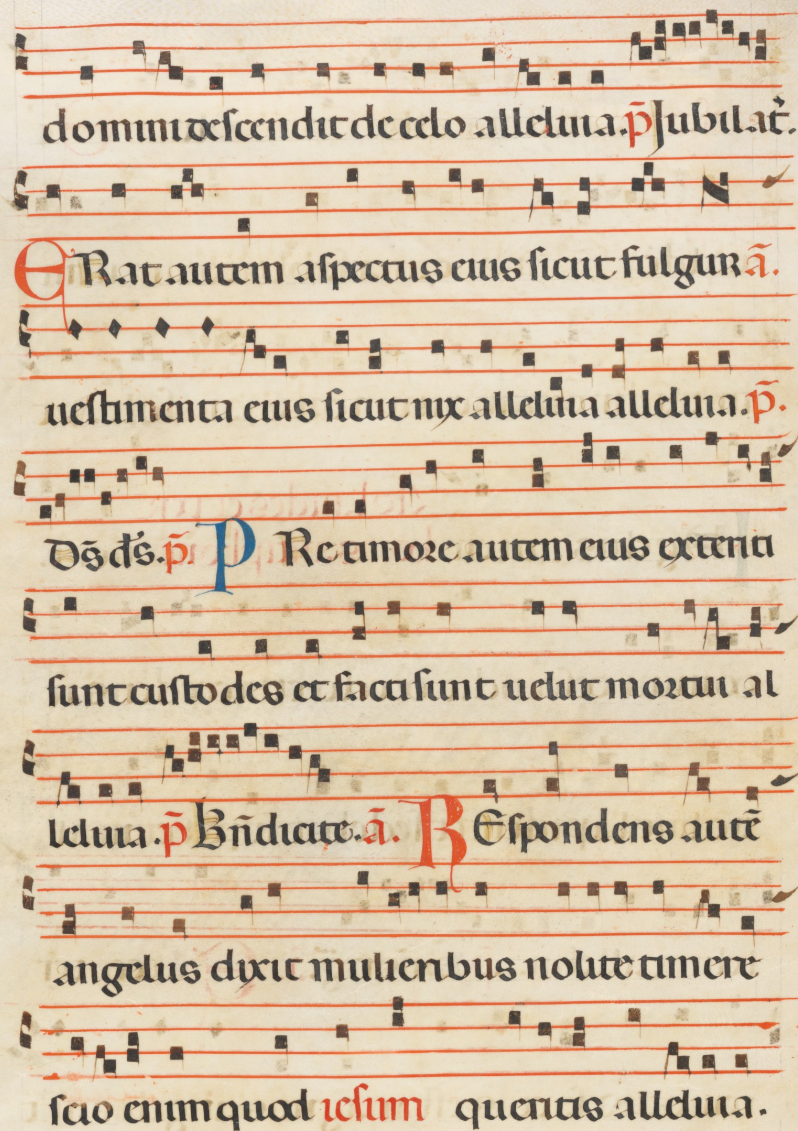 domini descendit de celo alleluia. p̄ Jubilat̃.
ERat autem aspectus eius sicut fulgur ā.
uestimenta eius sicut nix alleluia alleluia. p̄.
Ds̄ ds̄. p̄. PRe timore autem eius exterriti
sunt custodes et facti sunt uelut mortui al
leluia. p̄ Bn̄dicite. ā. REspondens autē
angelus dixit mulieribus nolite timere
scio enim quod iesum queritis alleluia.